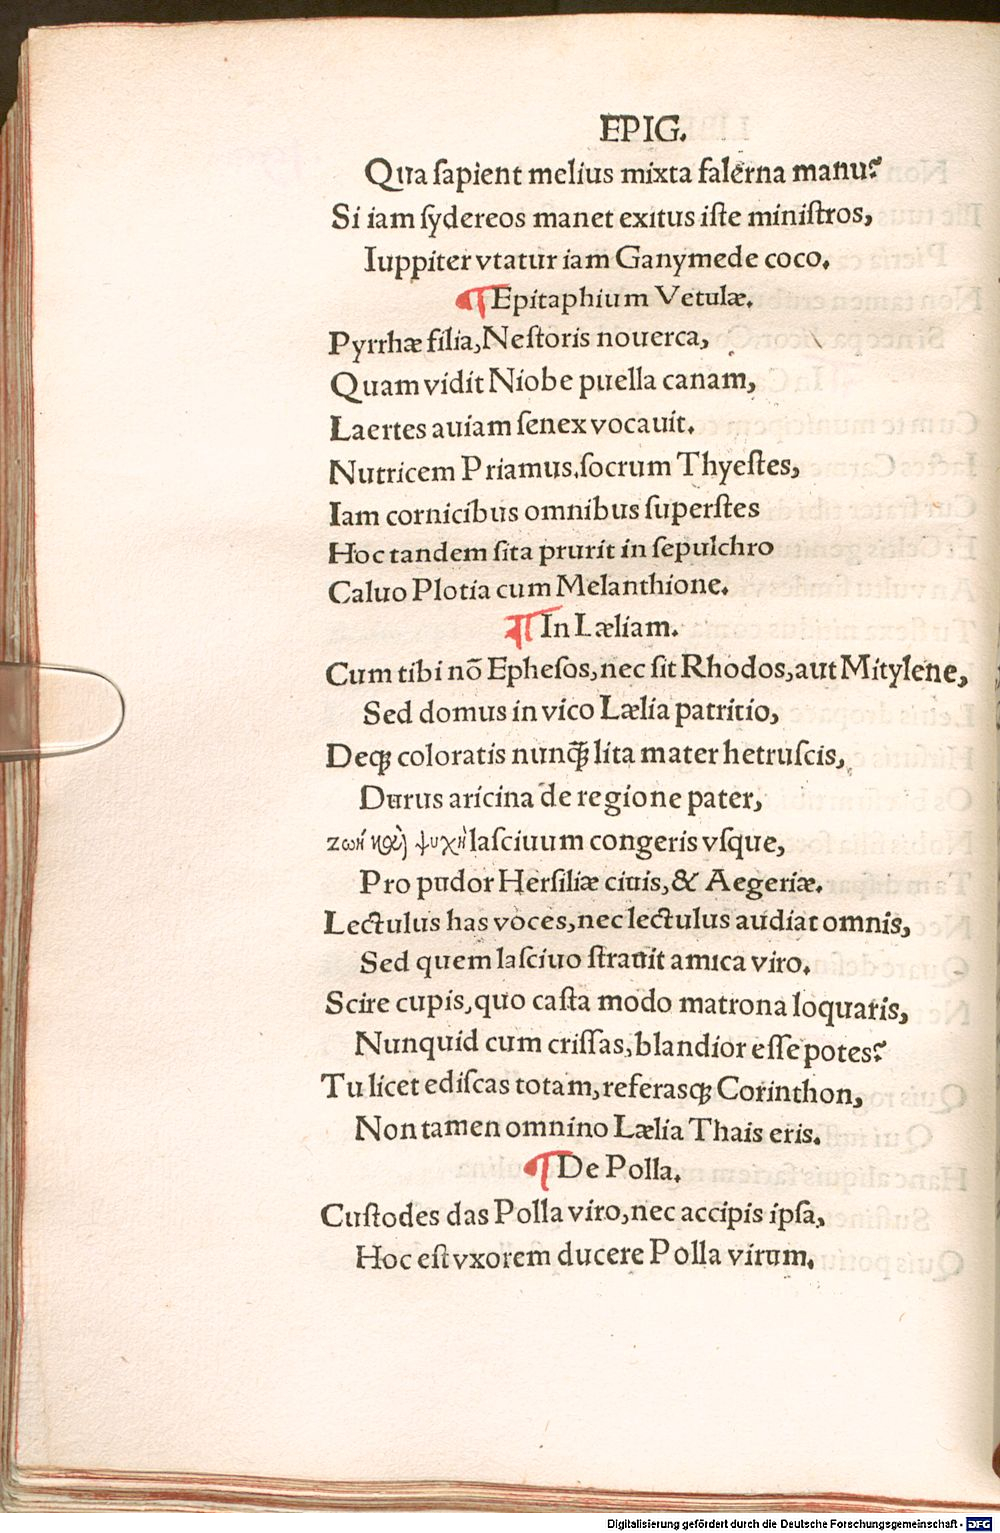 EPIG.
Qua sapient melius mixta falerna manu?
Si iam sydereos manet exitus iste ministros,
Iuppiter vtatur iam Ganymede coco.
¶ Epitaphium Vetulæ.
Pyrrhæ filia, Nestoris nouerca,
Quam vidit Niobe puella canam,
Laertes auiam senex vocauit.
Nutricem Priamus, socrum Thyestes,
Iam cornicibus omnibus superstes
Hoc tandem sita prurit in sepulchro
Caluo Plotia cum Melanthione.
¶ In Læliam.
Cum tibi nõ Ephesos, nec sit Rhodos, aut Mitylene,
Sed domus in vico Lælia patritio,
Deqꝫ coloratis nunq̃ȝ lita mater hetruscis,
Durus aricina de regione pater,
ζωὴ καὶ ψυχὴ lasciuum congeris vsque,
Pro pudor Hersiliæ ciuis, & Aegeriæ.
Lectulus has voces, nec lectulus audiat omnis,
Sed quem lasciuo strauit amica viro.
Scire cupis, quo casta modo matrona loquaris,
Nunquid cum crissas, blandior esse potes?
Tu licet ediscas totam, referasqꝫ Corinthon,
Non tamen omnino Lælia Thais eris.
¶ De Polla.
Custodes das Polla viro, nec accipis ipsa,
Hoc est vxorem ducere Polla virum.
Digitalisierung gefördert durch die Deutsche Forschungsgemeinschaft - DFG